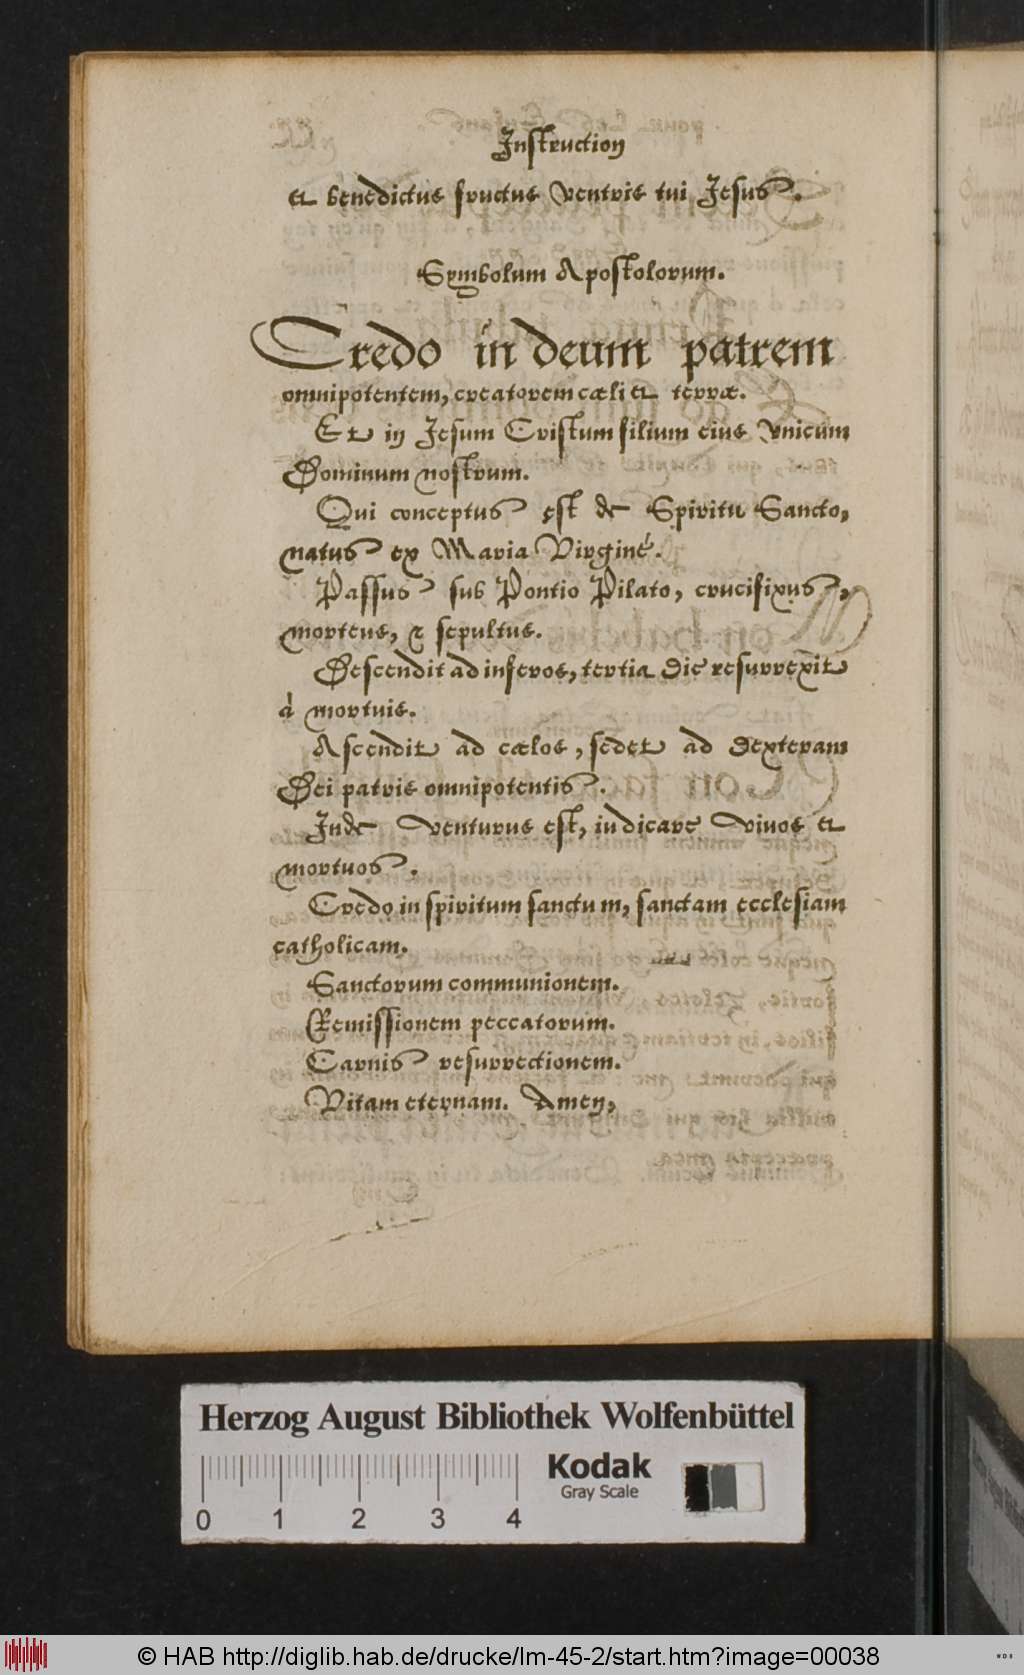 Instruction
et benedictus fructus ventris tui Jesus.
Symbolum Apostolorum.
Credo in deum patrem
omnipotentem, creatorem cæli et terræ.
Et in Jesum Cristum filium eius vnicum
Dominum nostrum.
Qui conceptus est de Spiritu Sancto,
natus ex Maria Virginé.
Passus sub Pontio Pilato, crucifixus,
morteus, & sepultus.
Descendit ad inferos, tertia die resurrexit
à mortuis.
Ascendit ad cælos, sedet ad dexteram
Dei patris omnipotentis.
Inde venturus est, iudicare vivos et
mortuos.
Credo in spiritum sanctum, sanctam ecclesiam
catholicam.
Sanctorum communionem.
Remissionem peccatorum.
Carnis resurrectionem.
Vitam eternam. Amen,
Herzog August Bibliothek Wolfenbüttel
Kodak
Gray Scale
0 1 2 3 4
© HAB http://diglib.hab.de/drucke/lm-45-2/start.htm?image=00038